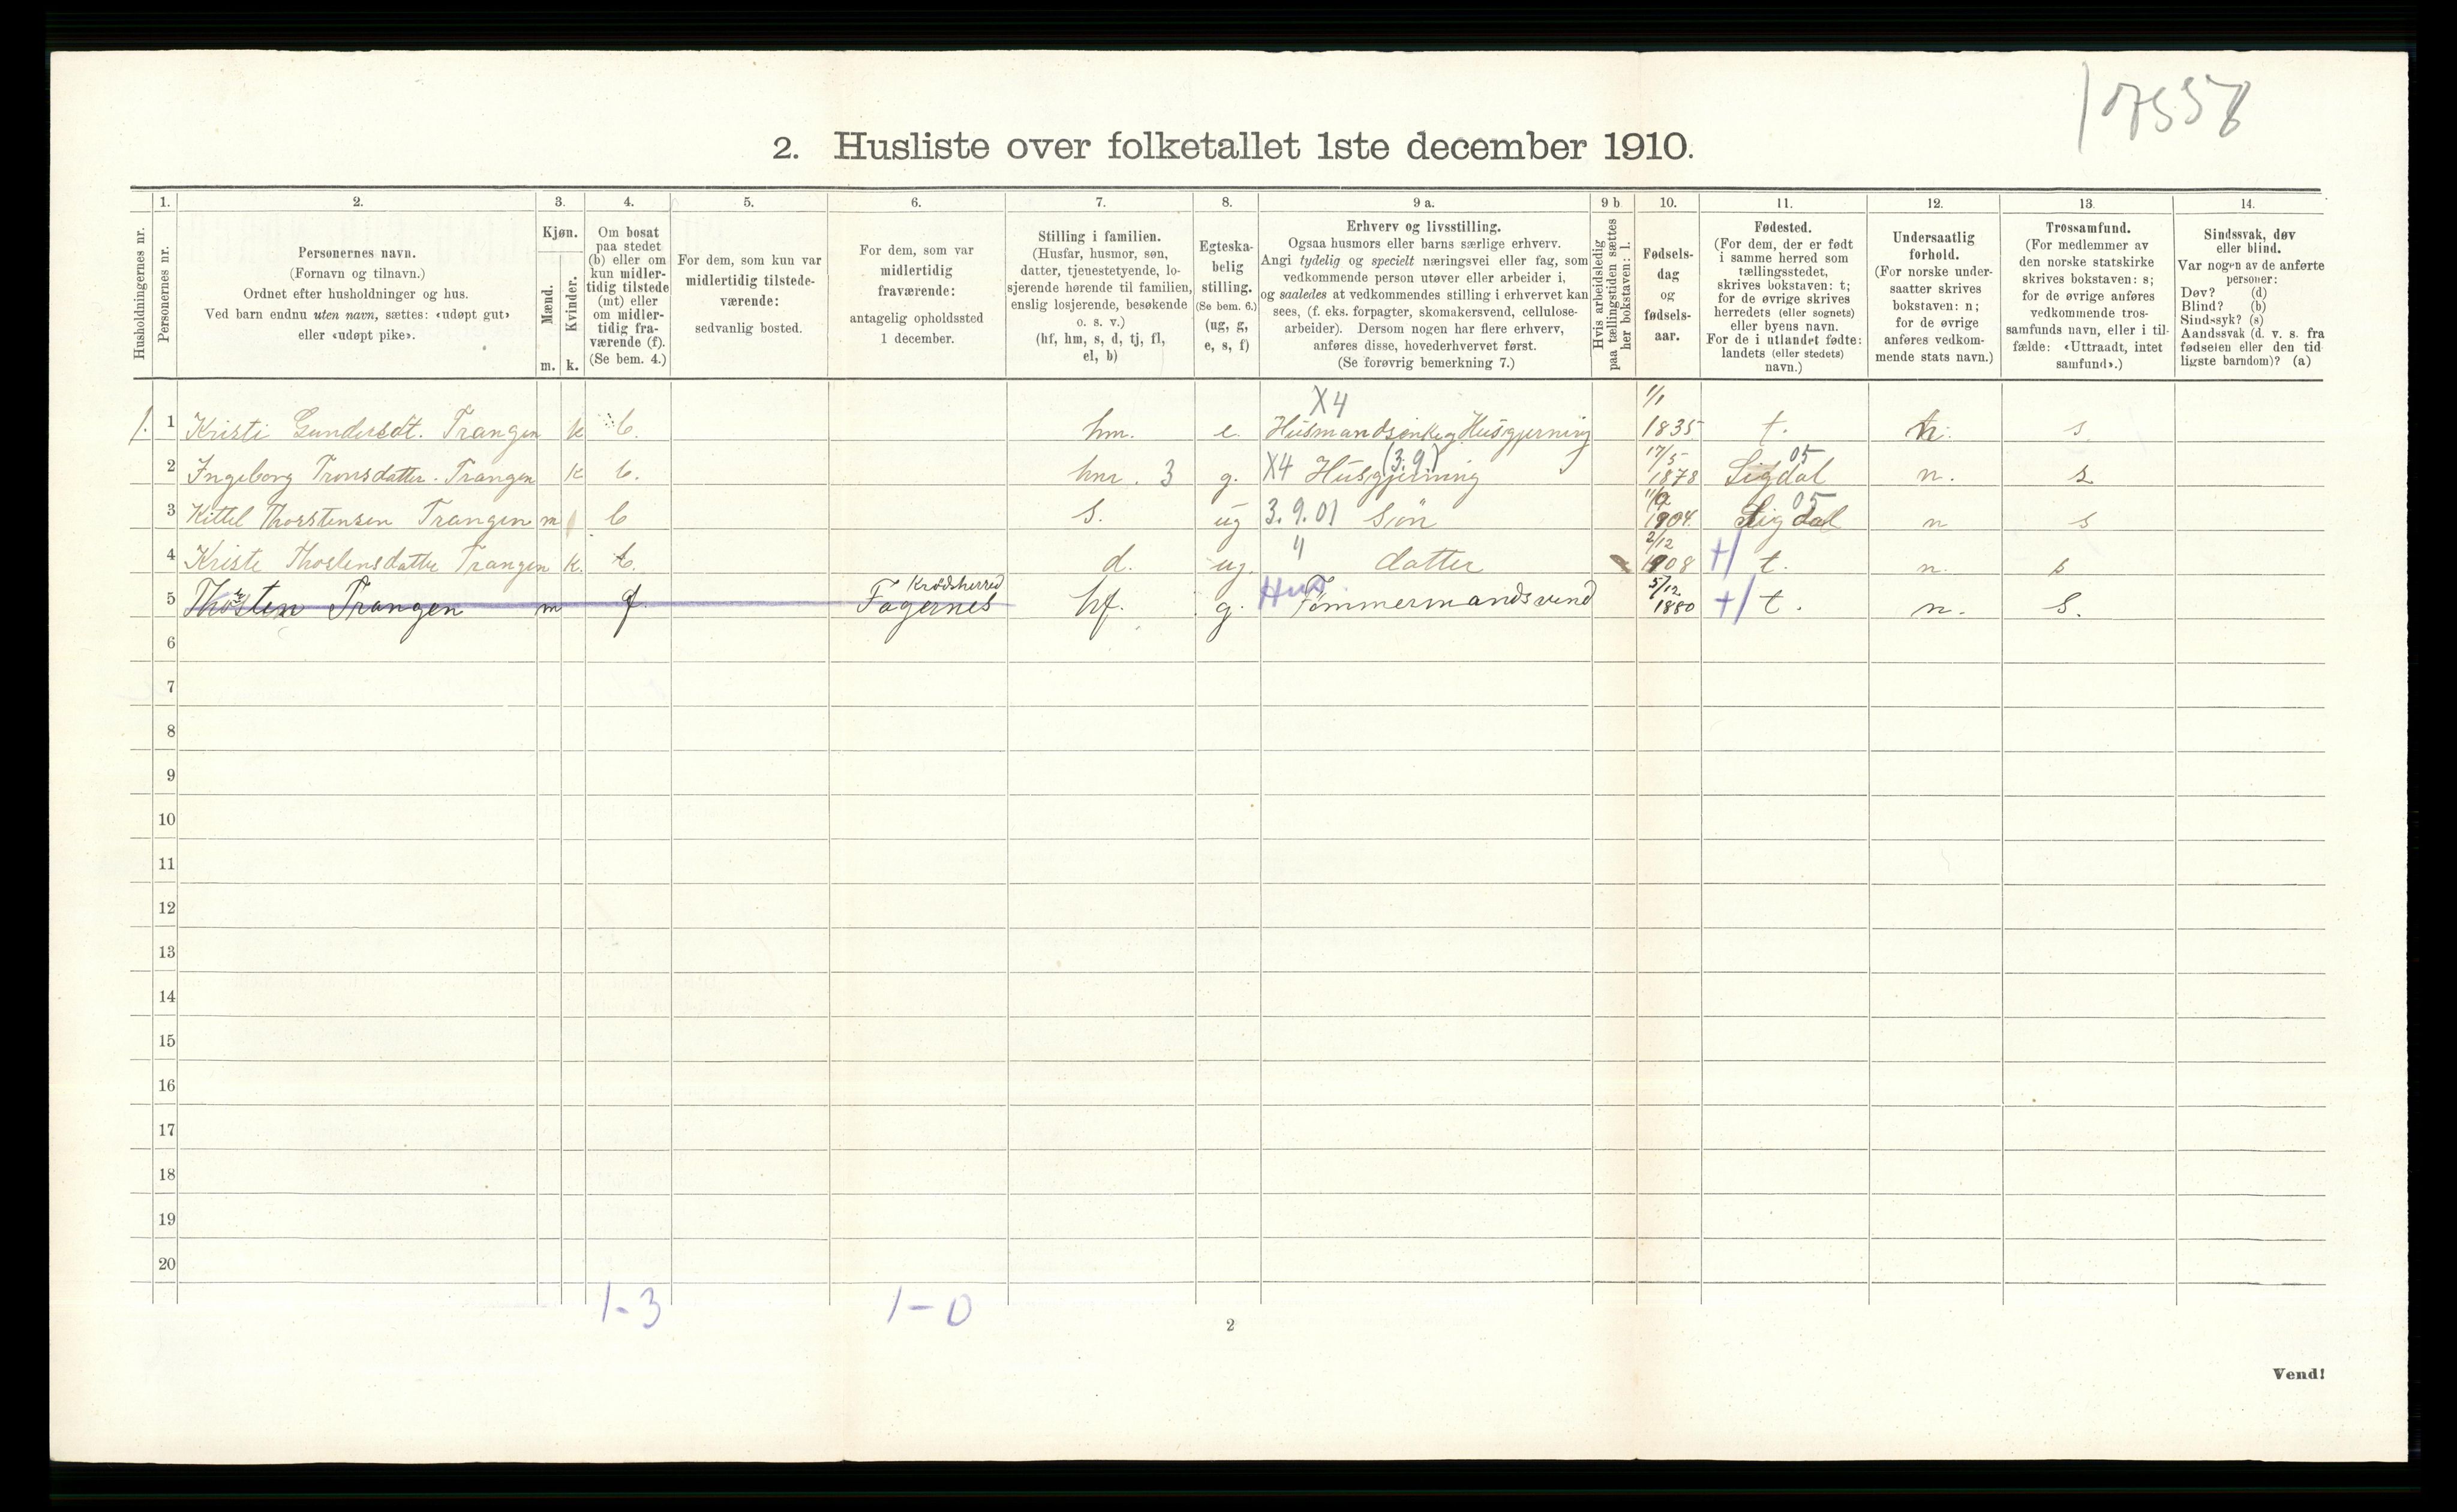 2. Husliste over folketallet 1ste december 1910.
Husholdningernes nr.
1.
Personernes nr.
2.
Personernes navn.
(Fornavn og tilnavn.)
Ordnet efter husholdninger og hus.
Ved barn endnu uten navn, sættes: «udøpt gut»
eller «udøpt pike».
3.
Kjøn.
Mænd.
Kvinder.
m.
k.
4.
Om bosat
paa stedet
(b) eller om
kun midler-
tidig tilstede
(mt) eller
om midler-
tidig fra-
værende (f).
(Se bem. 4.)
5.
For dem, som kun var
midlertidig tilstede-
værende:
sedvanlig bosted.
6.
For dem, som var
midlertidig
fraværende:
antagelig opholdssted
1 december.
7.
Stilling i familien.
(Husfar, husmor, søn,
datter, tjenestetyende, lo-
sjerende hørende til familien,
enslig losjerende, besøkende
o. s. v.)
(hf, hm, s, d, tj, fl,
el, b)
8.
Egteska-
belig
stilling.
(Se bem. 6.)
(ug, g,
e, s, f)
9 a.
Erhverv og livsstilling.
Ogsaa husmors eller barns særlige erhverv.
Angi tydelig og specielt næringsvei eller fag, som
vedkommende person utøver eller arbeider i,
og saaledes at vedkommendes stilling i erhvervet kan
sees, (f. eks. forpagter, skomakersvend, cellulose-
arbeider). Dersom nogen har flere erhverv,
anføres disse, hovederhvervet først.
(Se forøvrig bemerkning 7.)
9 b
Hvis arbeidsledig
paa tællingstiden sættes
her bokstaven: l.
10.
Fødsels-
dag
og
fødsels-
aar.
11.
Fødested.
(For dem, der er født
i samme herred som
tællingsstedet,
skrives bokstaven: t;
for de øvrige skrives
herredets (eller sognets)
eller byens navn.
For de i utlandet fødte:
landets (eller stedets)
navn.)
12.
Undersaatlig
forhold.
(For norske under-
saatter skrives
bokstaven: n;
for de øvrige
anføres vedkom-
mende stats navn.)
13.
Trossamfund.
(For medlemmer av
den norske statskirke
skrives bokstaven: s;
for de øvrige anføres
vedkommende tros-
samfunds navn, eller i til-
fælde: «Uttraadt, intet
samfund».)
14.
Sindssvak, døv
eller blind.
Var nogen av de anførte
personer:
Døv? (d)
Blind? (b)
Sindssyk? (s)
Aandssvak (d. v. s. fra
fødselen eller den tid-
ligste barndom)? (a)
X4 1/1
1. 1 Kristi Gundersdt. Trangen k b. hm. e. Husmandsenke Husgjerning 1835 t. n. s.
2 Ingeborg Tronsdatter. Trangen k b. hm. 3 g. X4 Husgjerning (3.9) 17/5 1878 Sigdal 05 n. s
3 Kittel Thorstensen Trangen m b s. ug 3.9.01 Søn 1904. Sigdal 05 n s
4 Kristi Thorstensdatter Trangen k. b. d. ug. " datter 2/12 1908 +/ t. n. s
5 Thorsten Trangen m f Krødsherred Fagernes hf. g. Tømmermandsvend 5/12 1880 +/ t. n. S.
6
7
8
9
10
11
12
13
14
15
16
17
18
19
20
1-3 1-0
2
Vend!